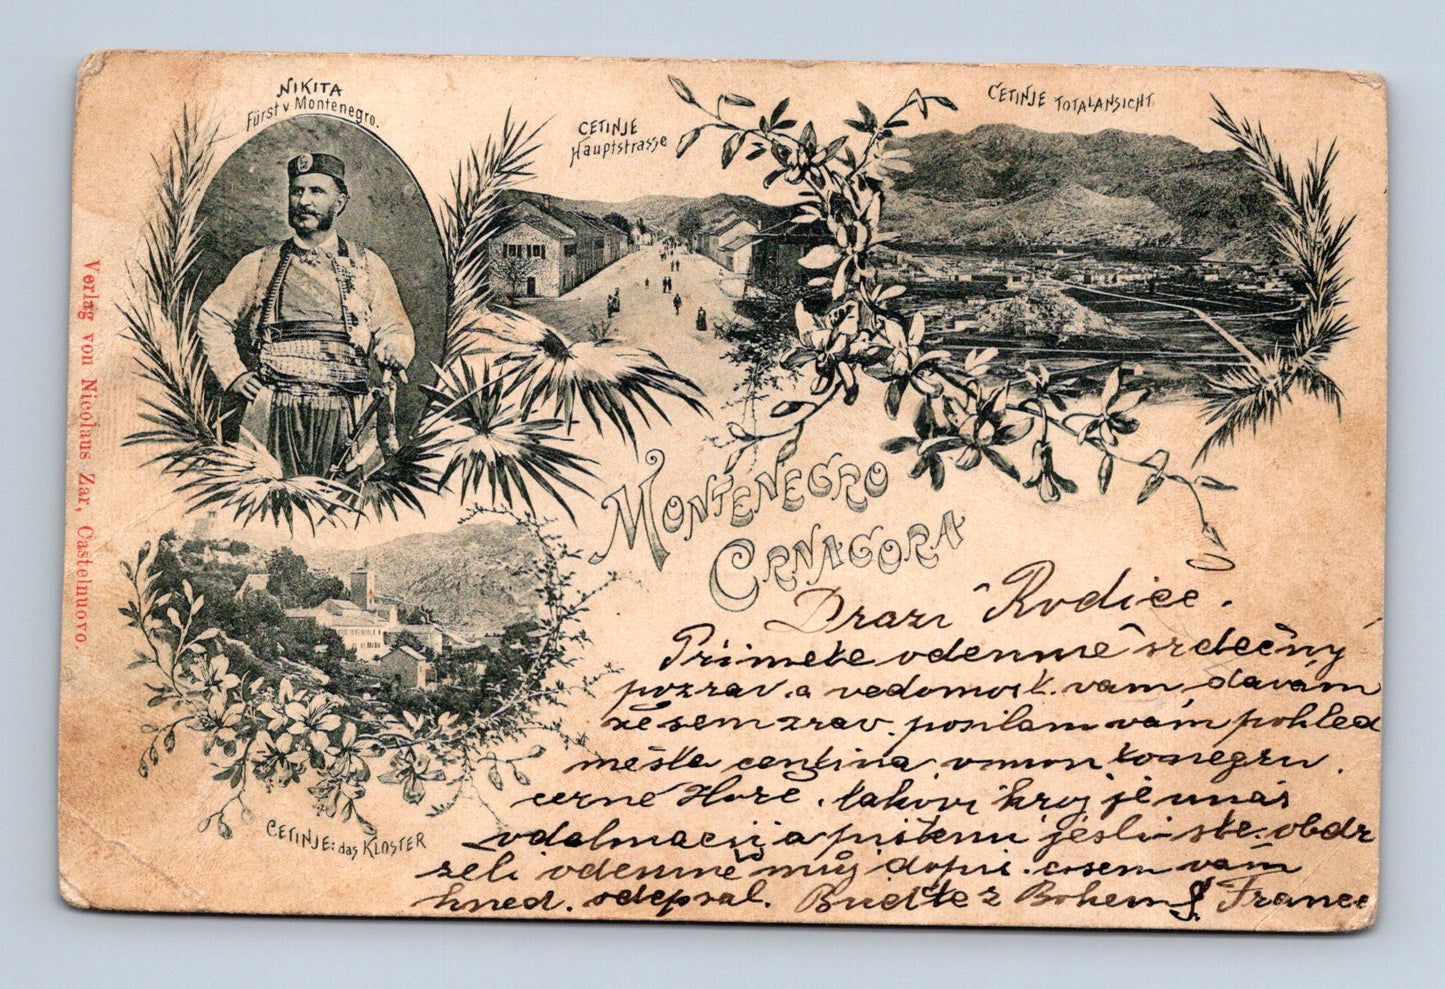 NIKITA
Fürst v Montenegro.
CETINJE
Hauptstrasse
CETINJE TOTALANSICHT.
Verlag von Nicolaus Zar, Castelnuovo.
MONTENEGRO
CRNAGORA
CETINJE: das KLOSTER
Drazí Rodiče.
Přimete odemně srdečný
pozrav. a vedomost. vam davám
že sem zrav. posilam vám pohled
města centina vmontonegru.
cerné Hoře. takovi kroj je unás
vdalmacij a pišemi jesli ste. obdr
želi odemně můj dopis. co sem vám
hned. odepsal. Buďte z Bohem France